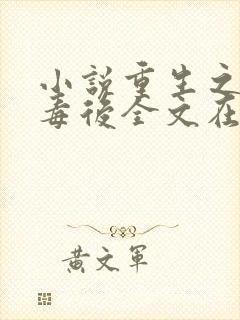 小説重生之
毒後全文在
黃文軍